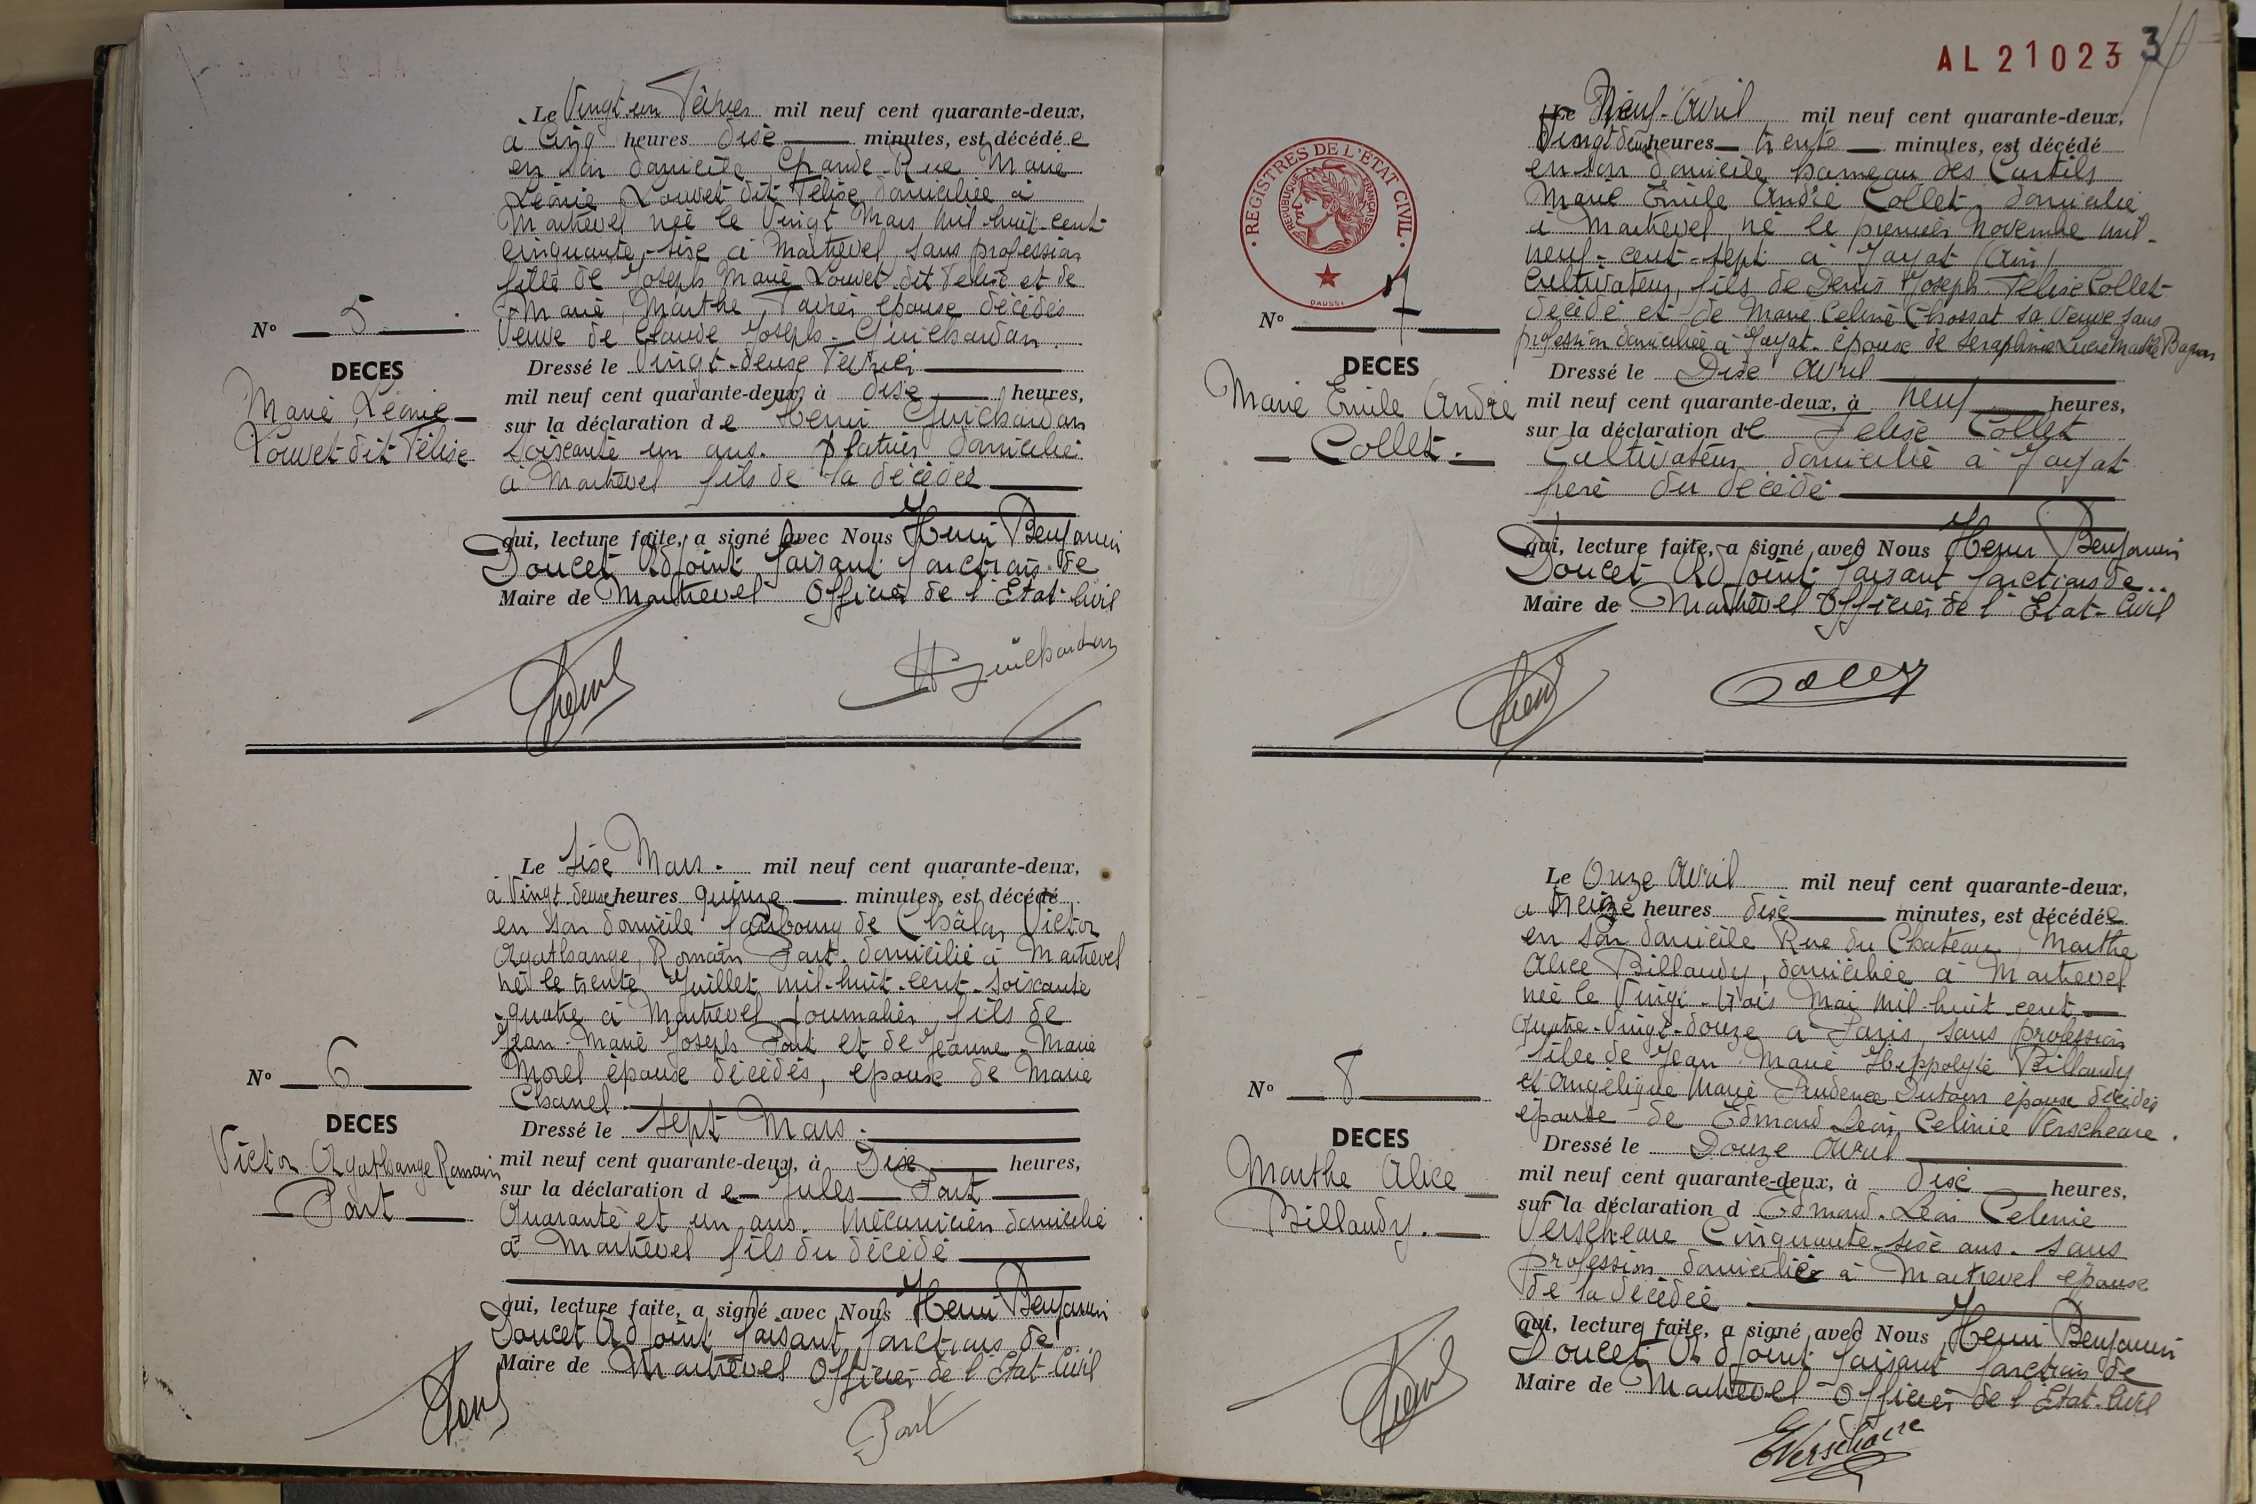 Le Vingt un Février mil neuf cent quarante-deux,
à Cinq heures dixe minutes, est décédée
en son domicile, Grande Rue Marie
Léonie Louvet dit Félixe domiciliée à
Montrevel née le Vingt Mars mil huit-cent
cinquante-sixe à Montrevel, sans profession
fille de Joseph Marie Louvet dit Félixe et de
Marie, Marthe, épouse décédés
Veuve de Claude Joseph Guichardan.
N° 5
DECES
Marie Léonie
Louvet-dit Félixe
Dressé le Vingt-deuxe Février
mil neuf cent quarante-deux, à dixe heures,
sur la déclaration de Henri Guichardan
soixante un ans. platrier domicilié
à Montrevel fils de la décédée
qui, lecture faite, a signé avec Nous Henri Benjamin
Doucet Adjoint faisant fonctions de
Maire de Montrevel Officier de l'Etat-Civil
H Guichardan
Le sixe Mars. mil neuf cent quarante-deux,
à Vingt deuxe heures quinze minutes, est décédé
en son domicile faubourg de Châlon, Victor
Agathange, Romain Pont. domicilié à Montrevel
né le trente Juillet mil-huit-cent-soixante
quatre à Montrevel, Journalier, fils de
Jean-Marie Joseph Pont et de Jeanne-Marie
Morel épouse décédés, épouse de Marie
Chanel.
N° 6
DECES
Victor Agathange Romain
Pont
Dressé le sept Mars.
mil neuf cent quarante-deux, à Dixe heures,
sur la déclaration de Jules Pont
Quarante et un ans. Mécanicien domicilié
à Montrevel fils du décédé
qui, lecture faite, a signé avec Nous Henri Benjamin
Doucet Adjoint faisant fonctions de
Maire de Montrevel Officier de l'Etat-Civil
Pont
AL 21023 3
REGISTRES DE L'ETAT CIVIL
REPUBLIQUE FRANÇAISE
DAUSSI
Le Neuf-Avril mil neuf cent quarante-deux,
Vingt deux heures trente minutes, est décédé
en son domicile hameau des Curtils
Marie Emile André Collet, domicilié
à Montrevel, né le premier Novembre mil-
neuf-cent-sept à Jayat (Ain)
Cultivateur, fils de Denis Joseph Félixe Collet-
décédé et de Marie Celinie Chossat sa Veuve sans
profession domiciliée à Jayat. épouse de Seraphine Lucie Marie
N° 7
DECES
Marie Emile André
Collet.
Dressé le Dixe Avril
mil neuf cent quarante-deux, à neuf heures,
sur la déclaration de Felixe Collet
Cultivateur domicilié à Jayat
frere du décédé
qui, lecture faite, a signé avec Nous Henri Benjamin
Doucet Adjoint faisant fonctions de..
Maire de Montrevel Officier de l'Etat-Civil
Le Onze Avril mil neuf cent quarante-deux,
à treize heures dixe minutes, est décédée
en son domicile Rue du Chateau, Marthe
Alice Billaudy, domiciliée à Montrevel
née le Vingt-trois Mai mil-huit-cent
quatre-vingt-douze à Paris, sans profession
fille de Jean Marie Hippolyte Billaudy
et Angélique Marie Prudence épouse décédés
épouse de Edmond Léon Celinie Verscheare.
N° 8
DECES
Marthe Alice
Billaudy.
Dressé le Douze Avril
mil neuf cent quarante-deux, à dixe heures,
sur la déclaration d Edmond-Léon Celinie
Verscheare Cinquante-sixe ans. sans
profession domiciliée à Montrevel épouse
de la décédée
qui, lecture faite, a signé avec Nous Henri Benjamin
Doucet Adjoint faisant fonctions de
Maire de Montrevel Officier de l'Etat-Civil